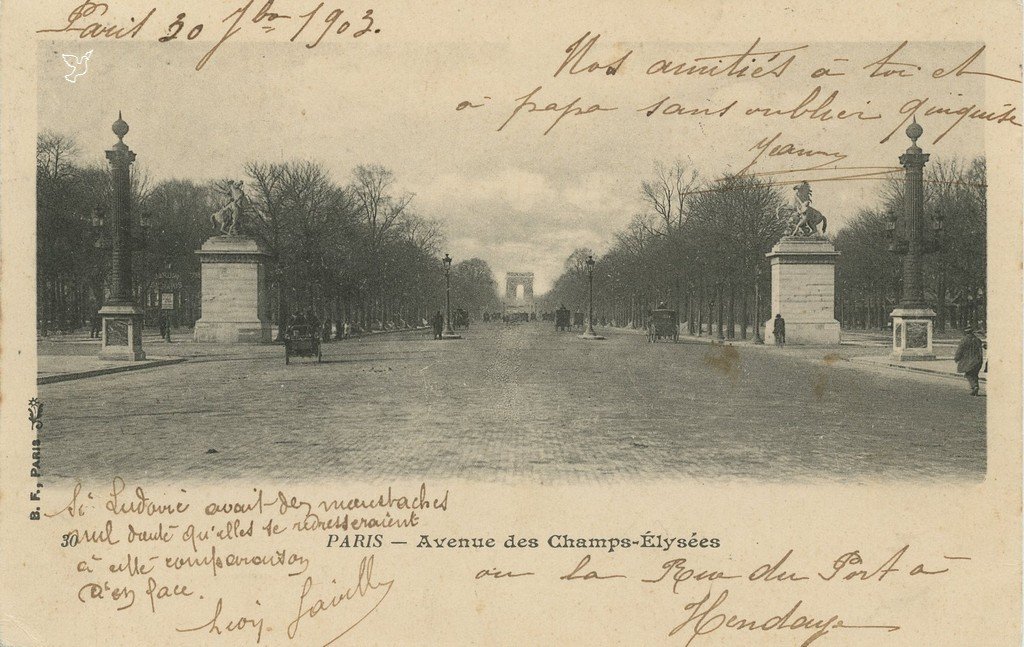 Paris 30 7bre 1903.
Nos amitiés à toi et
à papa sans oublier quiquise
Jeanny
B. F., PARIS
30
PARIS — Avenue des Champs-Élysées
ou la Rue du Port à
Hendaye
Si Ludovic avait des moustaches
nul doute qu'elles se redresseraient
à cette comparaison
d'en face.